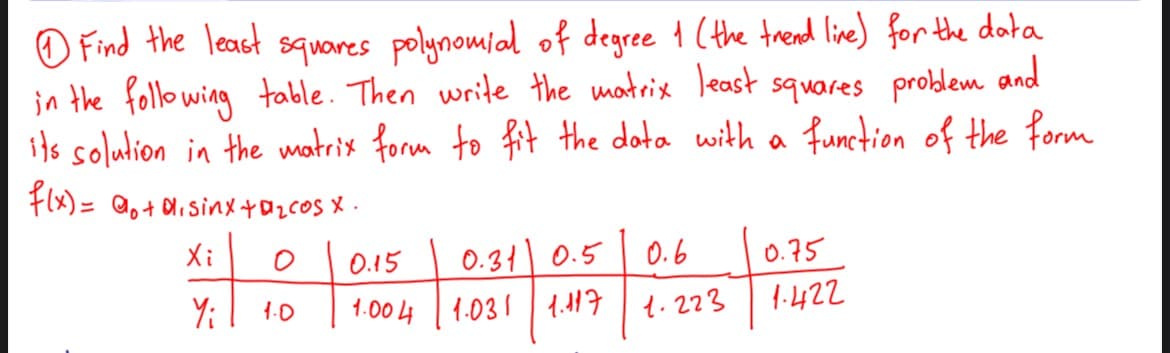 ① Find the least squares polynomial of degree 1 (the trend line) for the data
in the following table. Then write the matrix least squares problem and
its solution in the matrix form to fit the data with a function of the form
f(x) = a₀ + a₁ sin x + a₂ cos x .
Xi | 0 | 0.15 | 0.31 | 0.5 | 0.6 | 0.75
Yi | 1.0 | 1.004 | 1.031 | 1.117 | 1.223 | 1.422